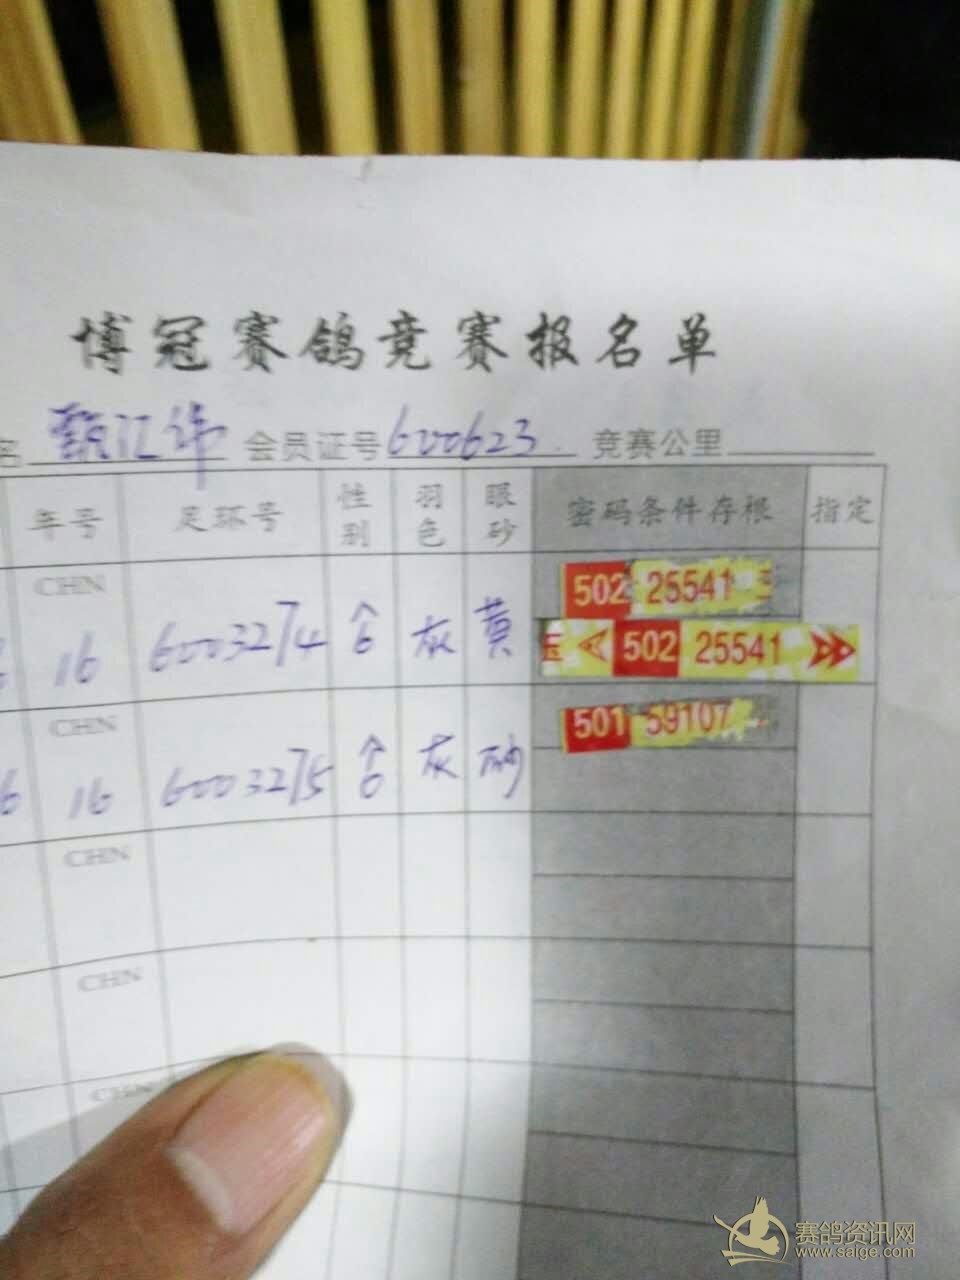 博冠赛鸽竞赛报名单
名 甄汇伟 会员证号 600623 竞赛公里
年号 足环号 性别 羽色 眼砂 密码条件存根 指定
CHN
502 25541
16 6003274 灰 黄
502 25541
CHN
501 59107
16 6003275 灰 砂
CHN
CHN
CHN
赛鸽资讯网
www.saige.com